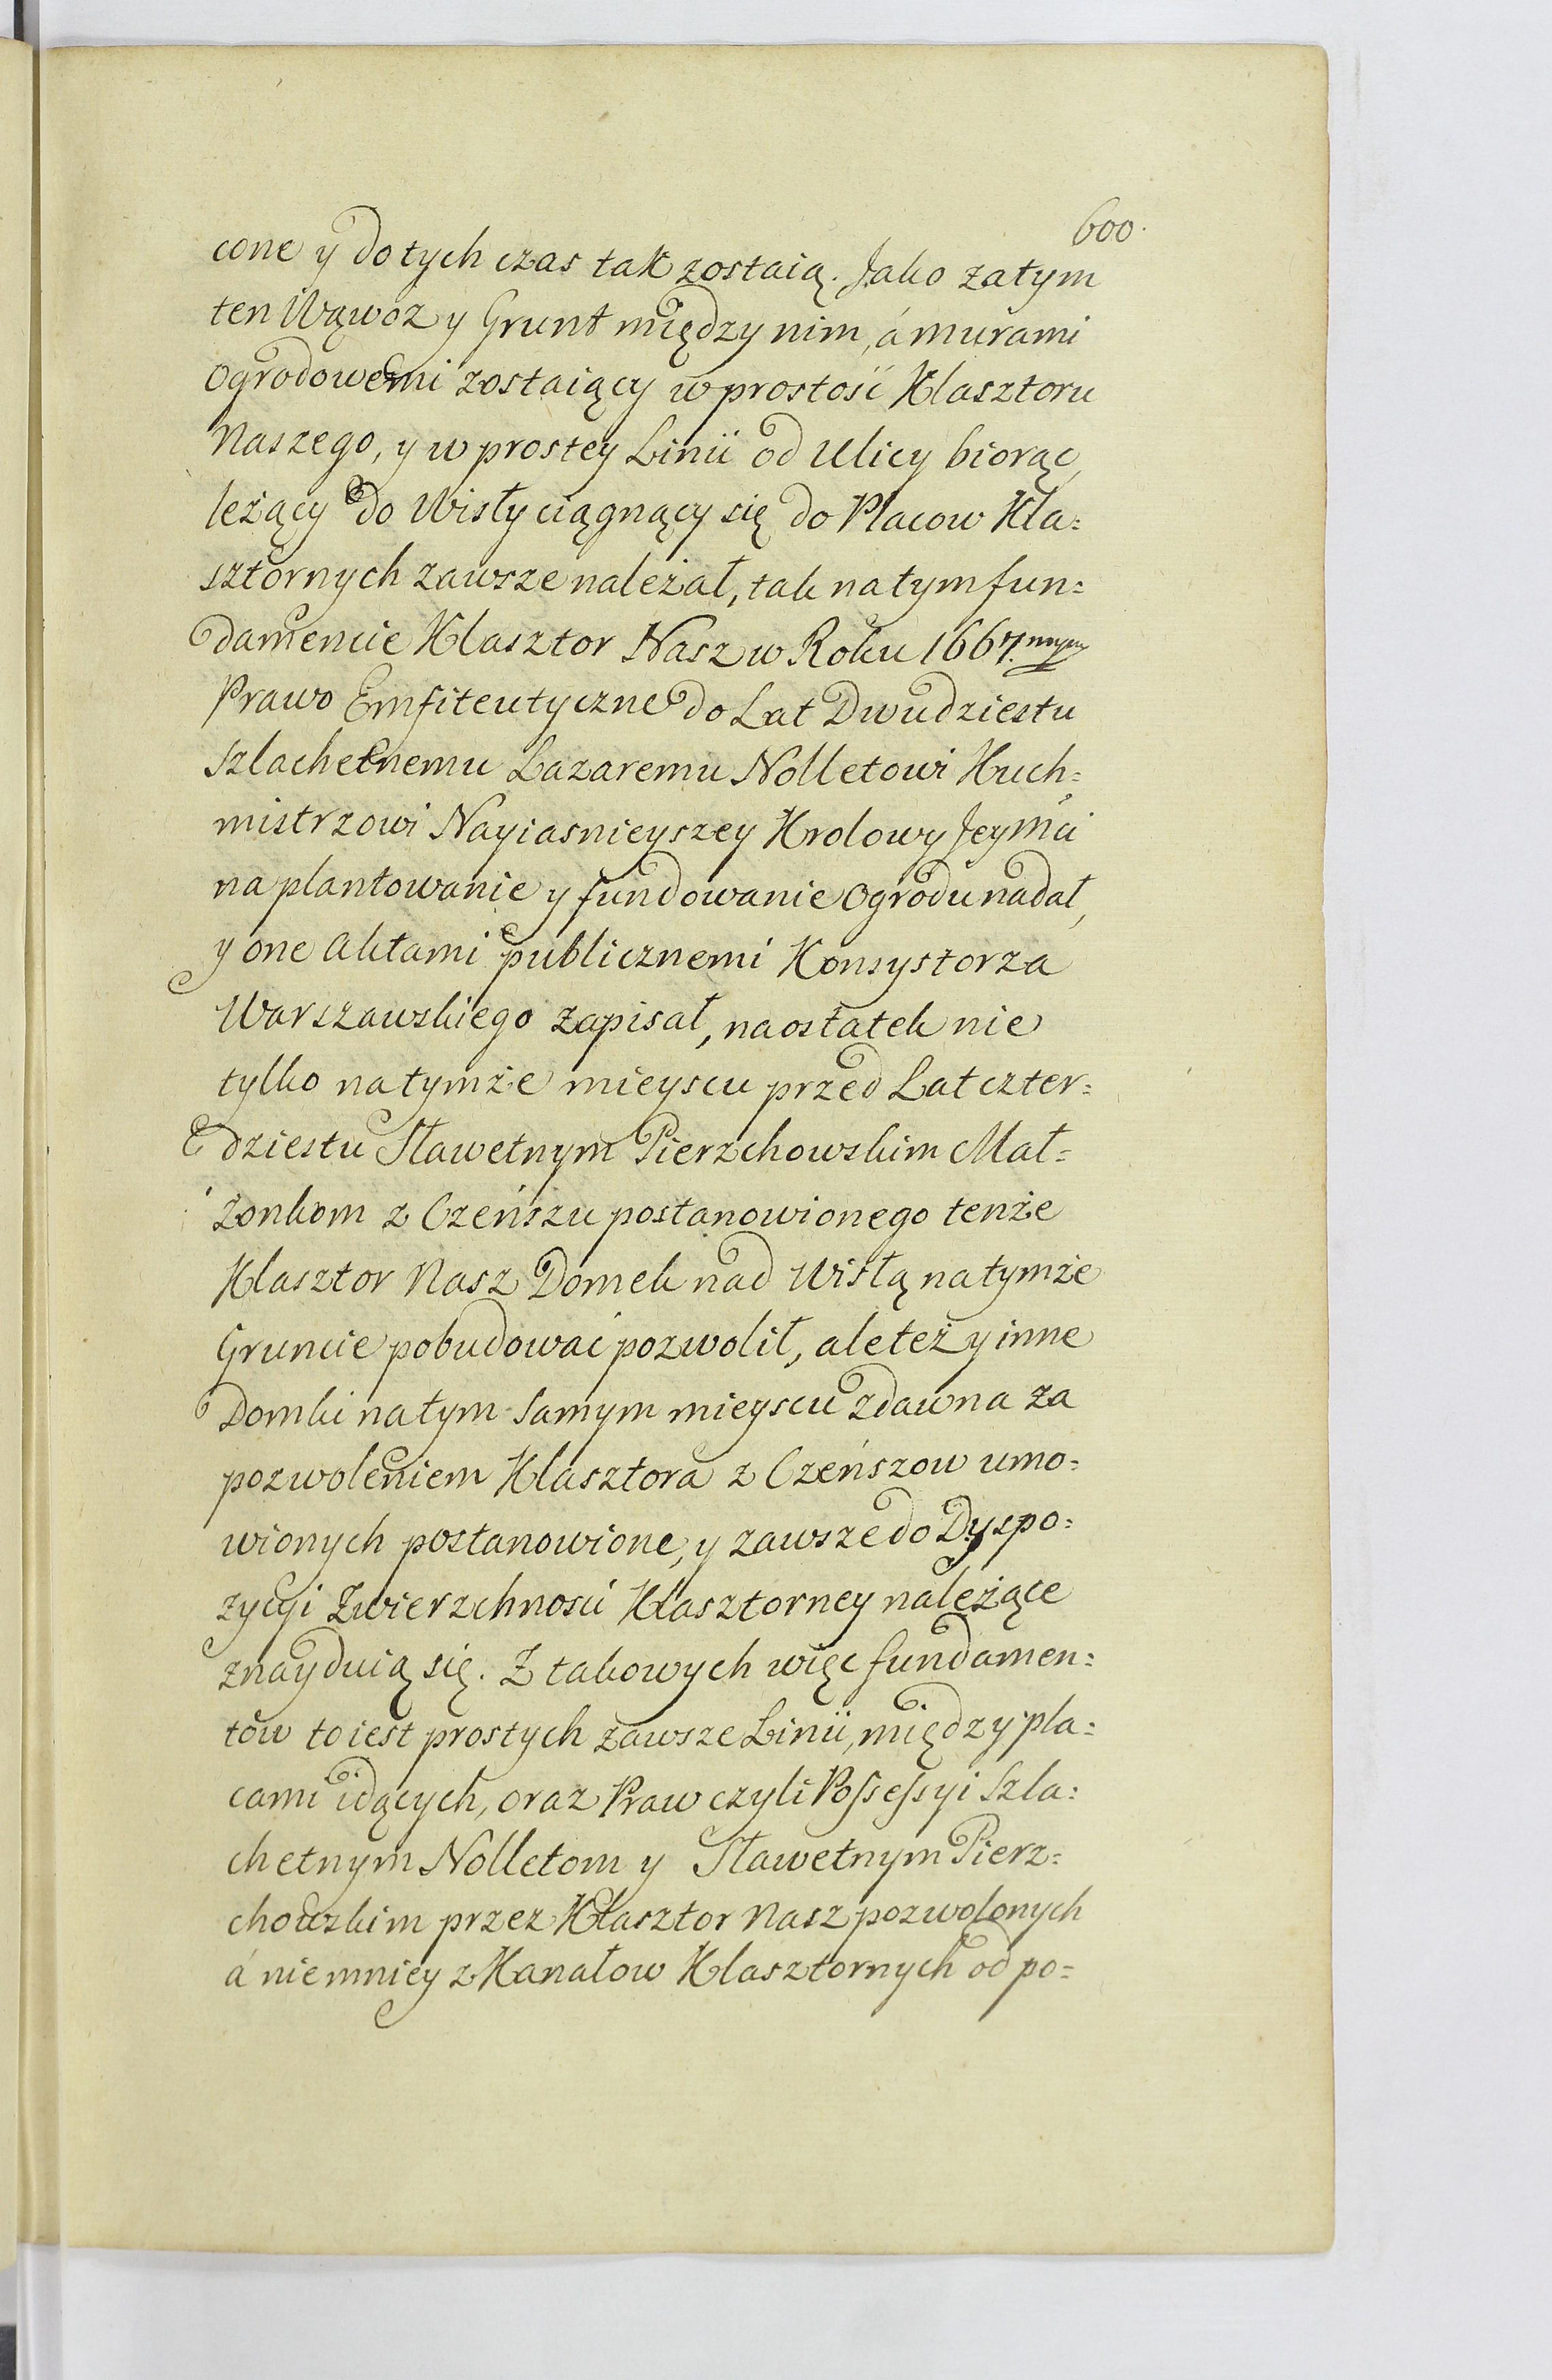 600.
cone y do tych czas tak zostaią. Jako zatym
ten Wąwoz y Grunt między nim, á murami
Ogrodowemi zostaiący wprostość Klasztoru
Naszego, y w prostey Linii od Ulicy biorąc,
leżący do Wisły ciągnący się do Placow Kla=
sztornych zawsze należał, tak na tym fun=
damencie Klasztor Nasz w Roku 1667.mym
Prawo Emfiteutyczne do Lat Dwudziestu
Szlachetnemu Lazaremu Nolletowi Kuch=
mistrzowi Nayiasnieyszey Krolowy Jeymći
na plantowanie y fundowanie Ogrodu nadał,
y one Aktami publicznemi Konsystorza
Warszawskiego zapisał, na ostatek nie
tylko na tymże mieyscu przed Lat czter=
dziestu Sławetnym Pierzchowskim Mał=
żonkom z Czeńszu postanowionego tenże
Klasztor Nasz Domek nad Wisłą na tymże
Gruncie pobudować pozwolił, ale też y inne
Domki na tym samym mieyscu zdawna za
pozwoleniem Klasztora z Czeńszow umo=
wionych postanowione, y zawsze do Dyspo=
zycyi Zwierzchności Klasztorney należące
znayduią się. Z takowych więc fundamen=
tow to iest prostych zawsze Linii, między pla=
cami idących, oraz Praw czyli Possessyi Szla=
chetnym Nolletom y Sławetnym Pierz=
chowskim przez Klasztor Nasz pozwolonych
á niemniey z Kanałow Klasztornych od po=